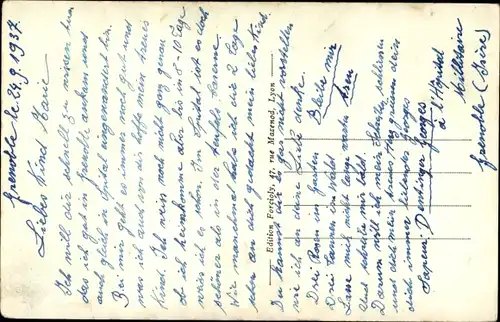 Grenoble le 24.9.1937
Liebes Kind Marie
Ich will dir schnell zu wissen tun
das ich gut in Grenoble ankam und
auch gleich in Spital eingewandert bin.
Bei mir geht es immer noch gut und
was ich auch von dir hoffe mein treues
Kind. Ich weis noch nicht ganz genau
ob ich heimkomme aber bis in 8-10 Tage
weis ich es schon. Im Spital ist es doch
schöner als in der Kaserne
Wie manchmal habe ich die 2 Tage
schon an dich gedacht mein liebes Kind.
Edition Forcioly, 47, rue Mazenod, Lyon
Du kannst dir gar nicht vorstellen
wie ich an deine Liebe denke.
Drei Rosen im Garten
Drei Tannen im Wald
Lasse mich nicht lange warten
Und schreibe mir bald.
Darum will ich mein Schreiben schliesen
und dich mein treues Herz grüssen dein
dich immer liebender Georges
Bleibe mir
treu
Sapeur Georges
à l'Hôpital
Militaire
Grenoble (Isère)